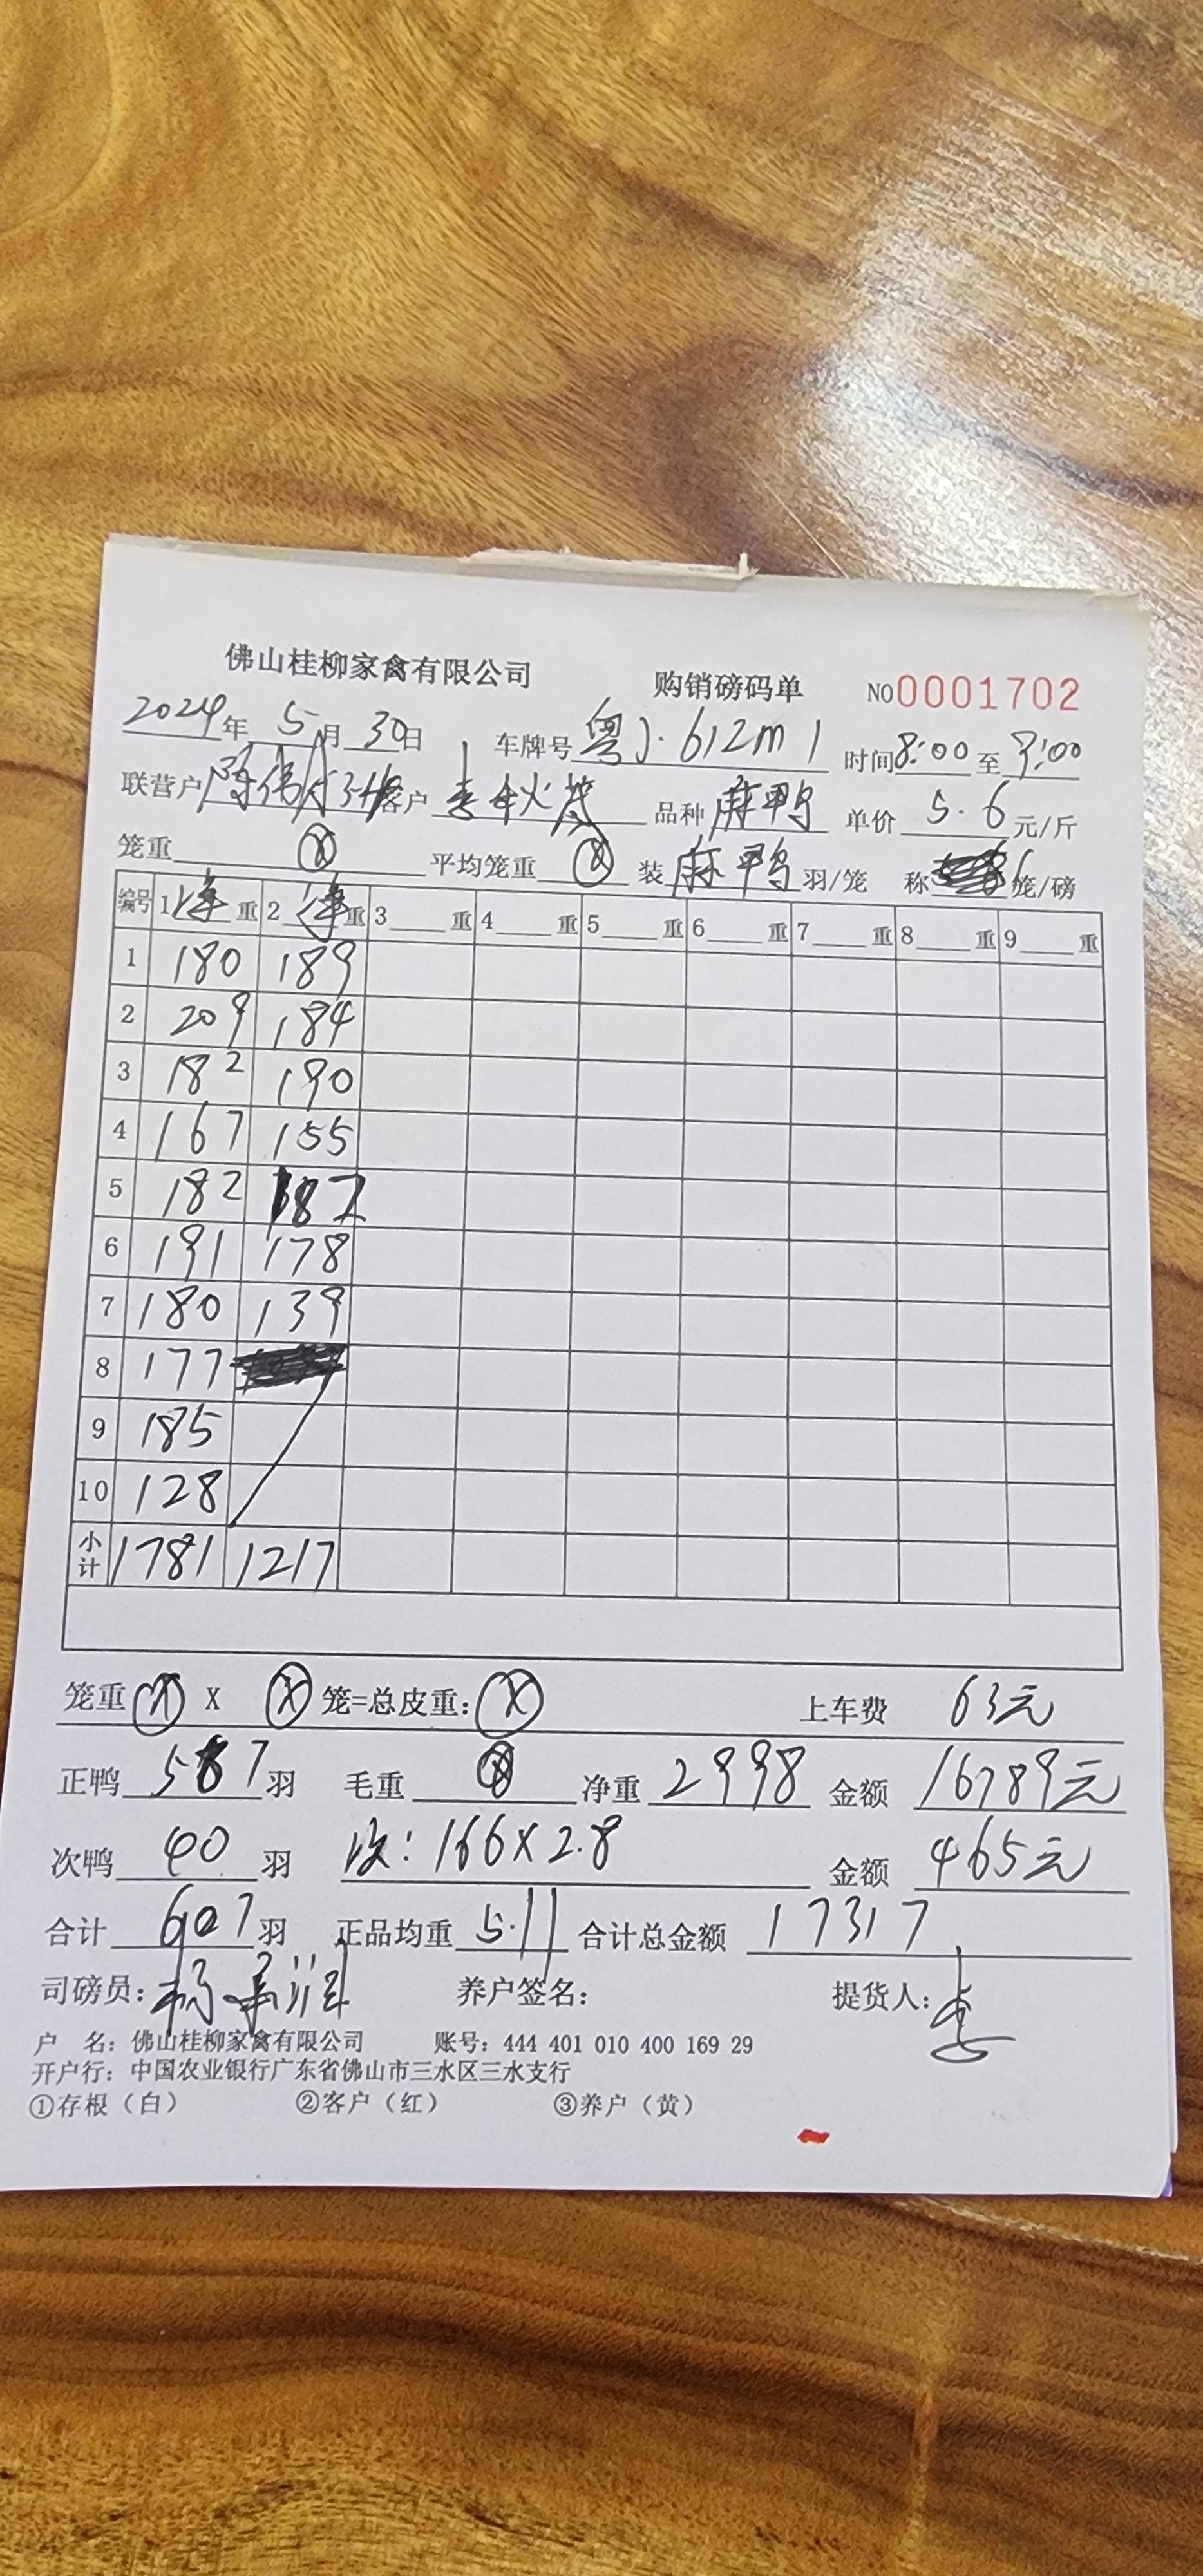 佛山桂柳家禽有限公司 购销磅码单 NO0001702
2024年 5月 30日 车牌号 粤J·612m1 时间 8:00 至 9:00
联营户 客户 李秋茂 品种 麻鸭 单价 5.6 元/斤
笼重 Ⓧ 平均笼重 Ⓧ 装 麻鸭 羽/笼 称 6 笼/磅
编号 1 净 重 2 净 重 3 重 4 重 5 重 6 重 7 重 8 重 9 重
1 180 189
2 209 184
3 182 190
4 167 155
5 182 182
6 191 178
7 180 139
8 177
9 185
10 128
小计 1781 1217
笼重 Ⓧ X Ⓧ 笼=总皮重: Ⓧ 上车费 63元
正鸭 587 羽 毛重 Ⓧ 净重 2998 金额 16789元
次鸭 40 羽 次: 166X2.8 金额 465元
合计 607 羽 正品均重 5.11 合计总金额 17317
司磅员: 养户签名: 提货人: 李
户 名: 佛山桂柳家禽有限公司 账号: 444 401 010 400 169 29
开户行: 中国农业银行广东省佛山市三水区三水支行
①存根（白） ②客户（红） ③养户（黄）